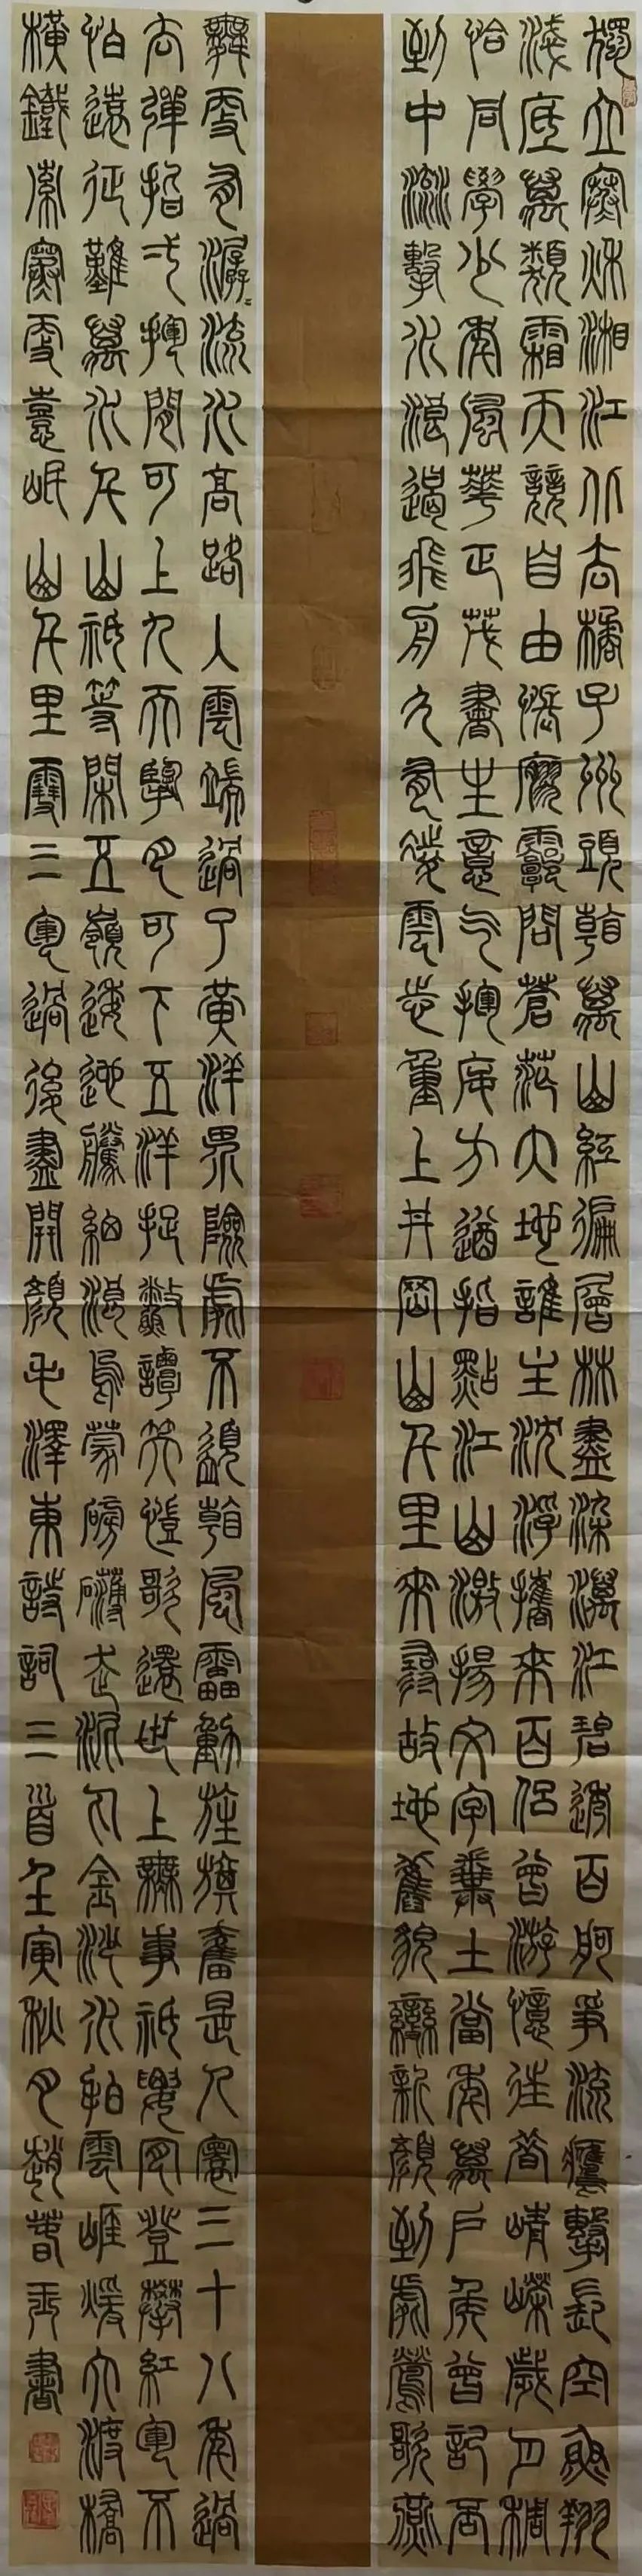 獨立寒秋湘江北去橘子洲頭看萬山紅徧層林盡染漫江碧透百舸爭流鷹擊長空魚翔
淺底萬類霜天競自由悵寥廓問蒼茫大地誰主沈浮攜來百侶曾游憶往昔崢嶸歲月稠
恰同學少年風華正茂書生意氣揮斥方遒指點江山激揚文字糞土當年萬戶侯曾記否
到中流擊水浪遏飛舟久有凌雲志重上井岡山千里來尋故地舊貌變新顏到處鶯歌燕
舞更有潺〻流水高路入雲端過了黃洋界險處不須看風雷動旌旗奮是人寰三十八年過
去彈指弌揮間可上九天擥月可下五洋捉鱉譚笑凱歌還世上無事祇要肯登攀紅軍不
怕遠征難萬水千山祇等閑五嶺逶迤騰細浪烏蒙磅礴走泥丸金沙水拍雲崖煖大渡橋
橫鐵索寒更喜岷山千里雪三軍過後盡開顏毛澤東詩詞三首壬寅秋月趙書